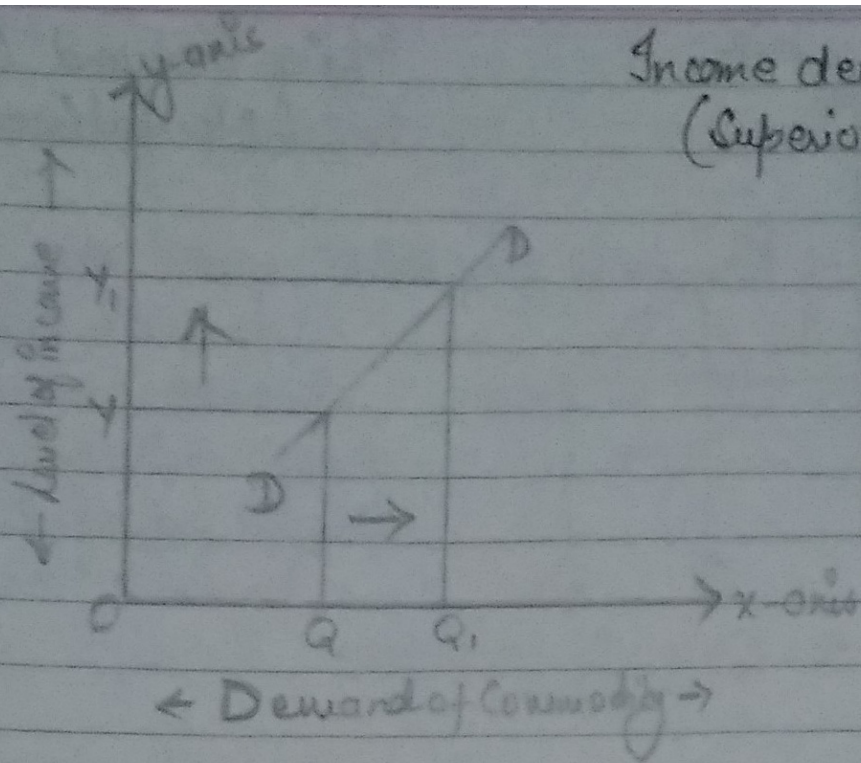 y-axis
Income de
(Superio
← Level of income →
Y₁
Y
D
D
O
Q
Q₁
x-axis
← Demand of Commodity →